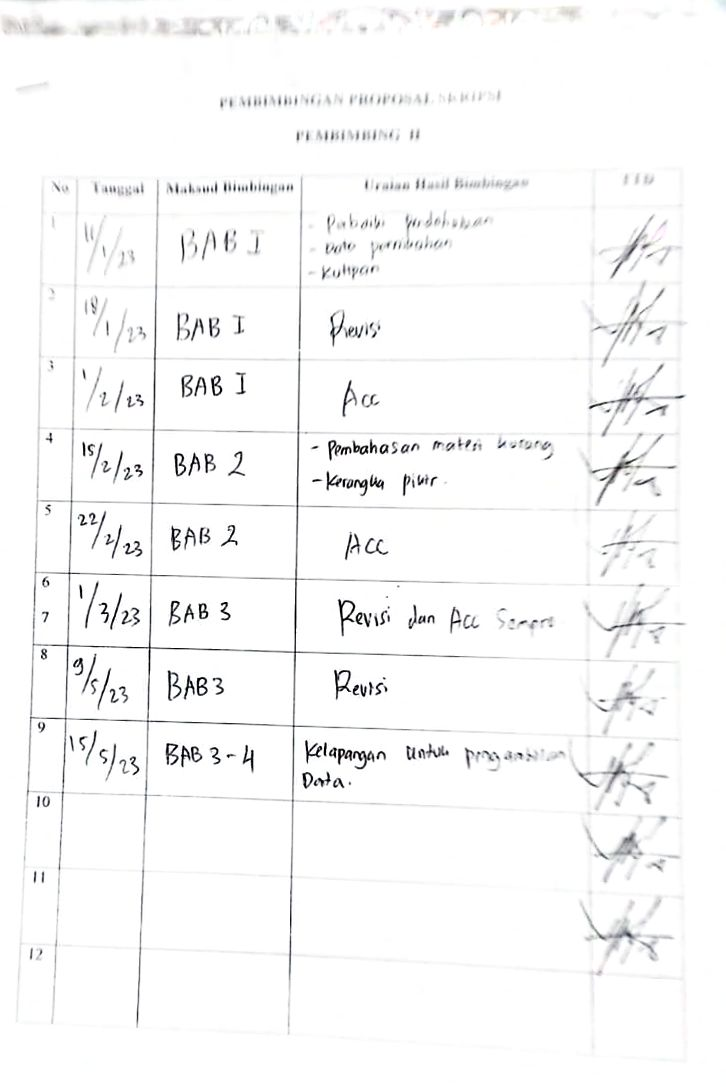 PEMBIMBINGAN PROPOSAL SKRIPSI
PEMBIMBING II
No Tanggal Maksud Bimbingan Uraian Hasil Bimbingan TTD
1 11/1/23 BAB I - Perbaiki
- Data
- Kutipan
2 18/1/23 BAB I Revisi
3 1/2/23 BAB I Acc
4 15/2/23 BAB 2 - Pembahasan materi kurang
- Kerangka pikir.
5 22/2/23 BAB 2 Acc
6 1/3/23 BAB 3 Revisi dan Acc Sempro
7
8 9/5/23 BAB 3 Revisi
9 15/5/23 BAB 3-4 Kelapangan untuk pengambilan
Data.
10
11
12